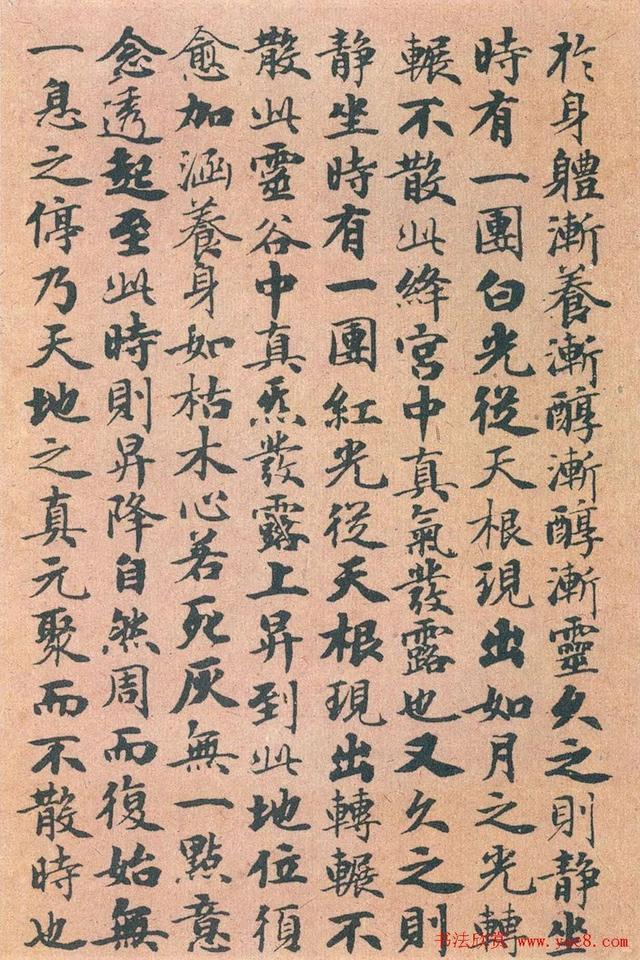 於身軆漸養漸醇漸醇漸靈久之則静坐
時有一團白光從天根現出如月之光轉
輾不散此絳宮中真氣發露也又久之則
静坐時有一團紅光從天根現出轉輾不
散此靈谷中真炁發露上昇到此地位須
愈加涵養身如枯木心若死灰無一點意
念透起至此時則昇降自然周而復始無
一息之停乃天地之真元聚而不散時也
书法欣赏 www.yac8.com